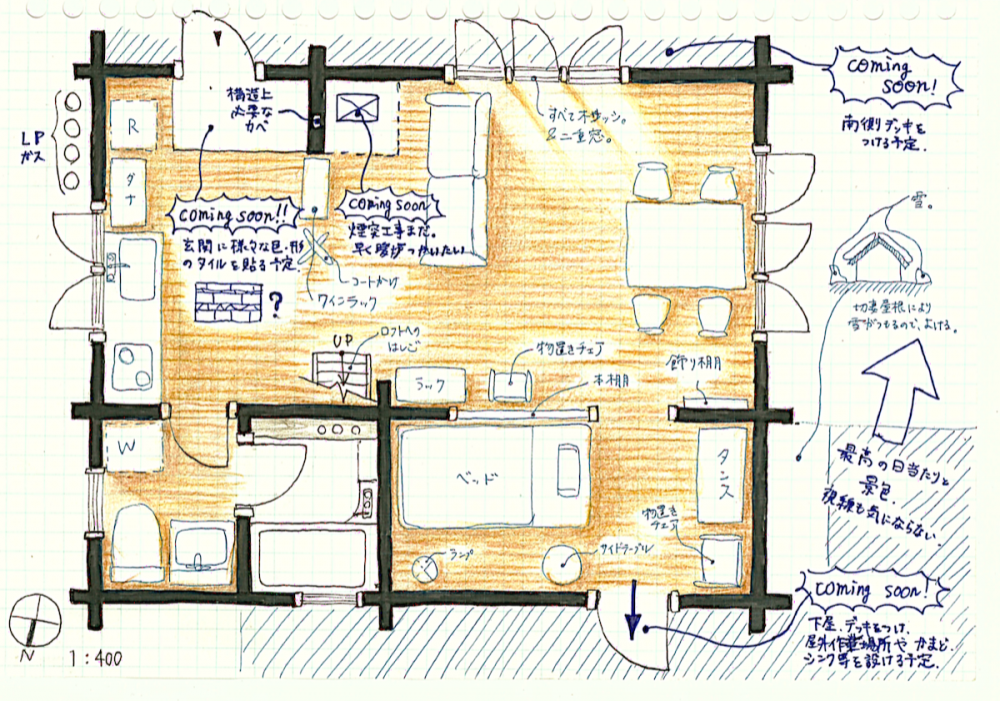 coming
soon!
南側デッキを
つける予定.
LP
ガス
R
タナ
構造上
必要な
カベ
すべて木サッシ。
&二重窓。
coming soon!!
玄関に様々な色・形
のタイルを貼る予定.
?
coming soon
煙突工事まだ。
早く暖歩つかいたい!
コートかけ
ワインラック
雪。
切妻屋根により
雪がつもるので、よける。
UP
ロフトへの
はしご
ラック
物置きチェア
本棚
飾り棚
W
ベッド
タンス
物置き
チェア
ランプ
サイドテーブル
最高の日当たりと
景色.
視線も気にならない.
coming soon!
下屋、デッキをつけ、
屋外作業場所や かまど.
シンク等を設ける予定.
N
1:400